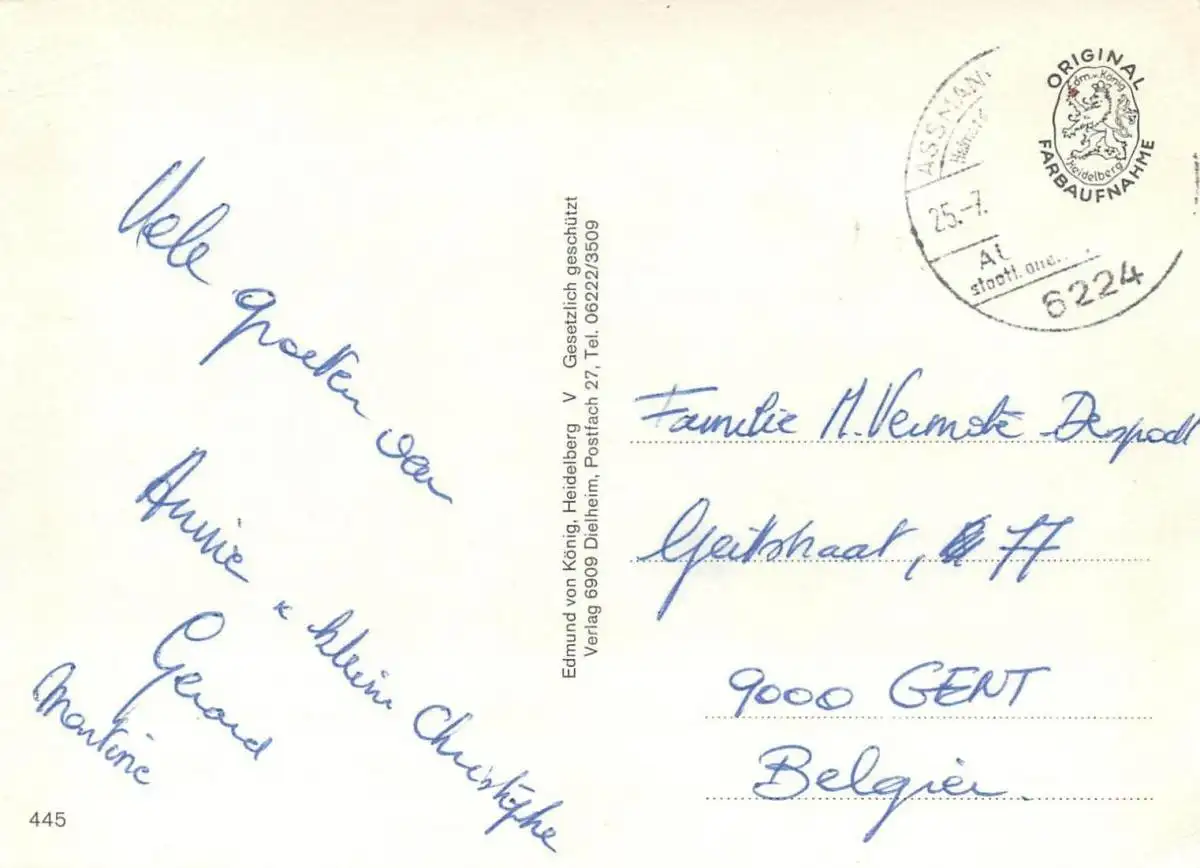 Vele groeten van
Annie & klein Christophe
Gerard
Martine
445
Edmund von König, Heidelberg V Gesetzlich geschützt
Verlag 6909 Dielheim, Postfach 27, Tel. 06222/3509
ASSMAN
25.-7.
Al
staatl. ane
6224
ORIGINAL
Edm. v. König
Heidelberg
FARBAUFNAHME
Familie M. Vermote
Geitstraat, 77
9000 GENT
Belgien.